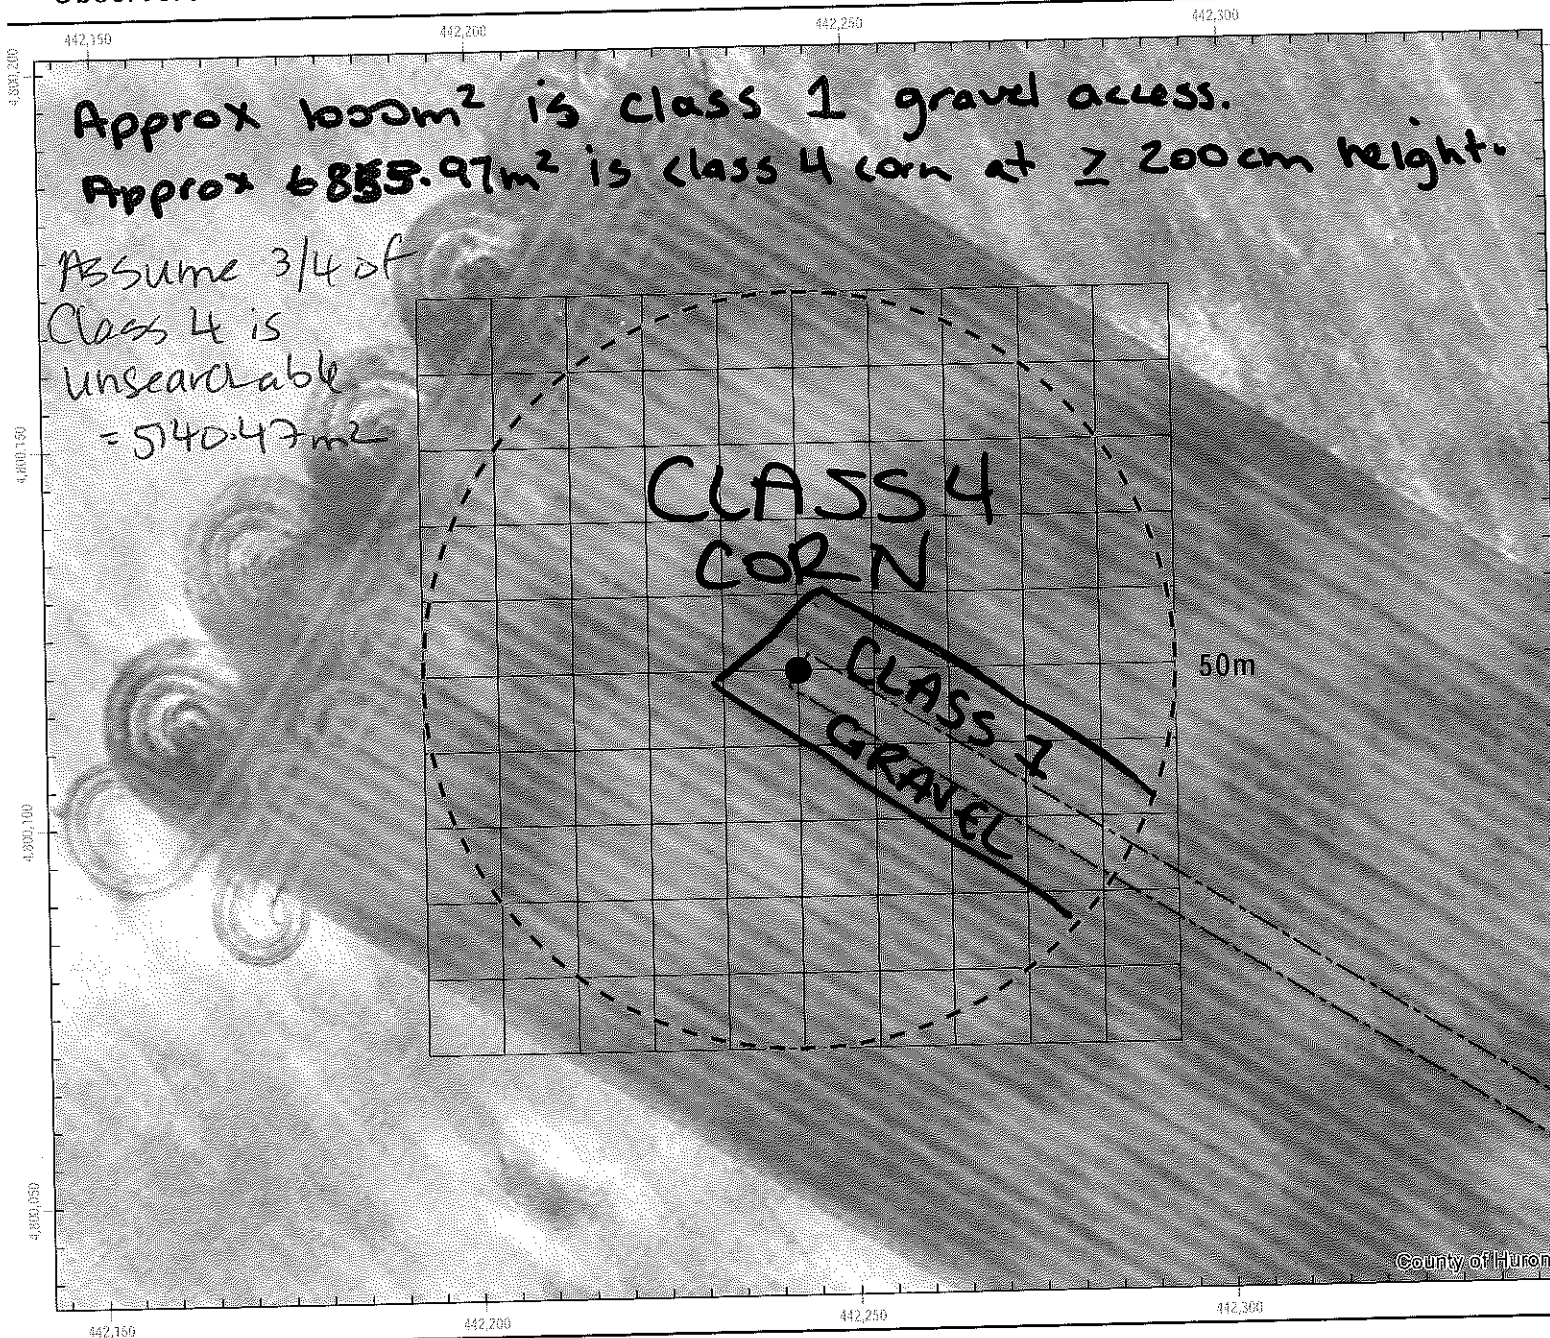 442,150 442,200 442,250 442,300
4,800,200
Approx 1000m² is class 1 gravel access.
Approx 6853.97m² is class 4 corn at ≥ 200cm height.
Assume 3/4 of
Class 4 is
Unsearchable
= 5140.47m²
4,800,150
CLASS 4
CORN
CLASS 1
GRAVEL
50m
4,800,100
4,800,050
County of Huron
442,150 442,200 442,250 442,300